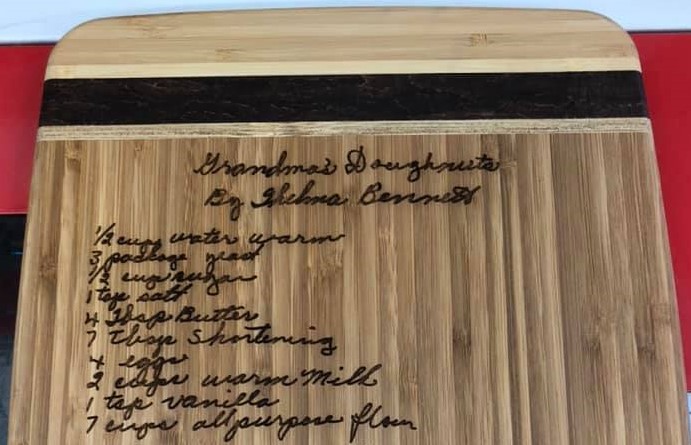 Grandmas Doughnuts
By Thelma Bennett
1/2 cup water warm
3 package yeast
1/2 cup sugar
1 tsp salt
4 Tbsp Butter
7 Tbsp Shortening
4 eggs
2 cups warm Milk
1 tsp vanilla
7 cups all purpose flour